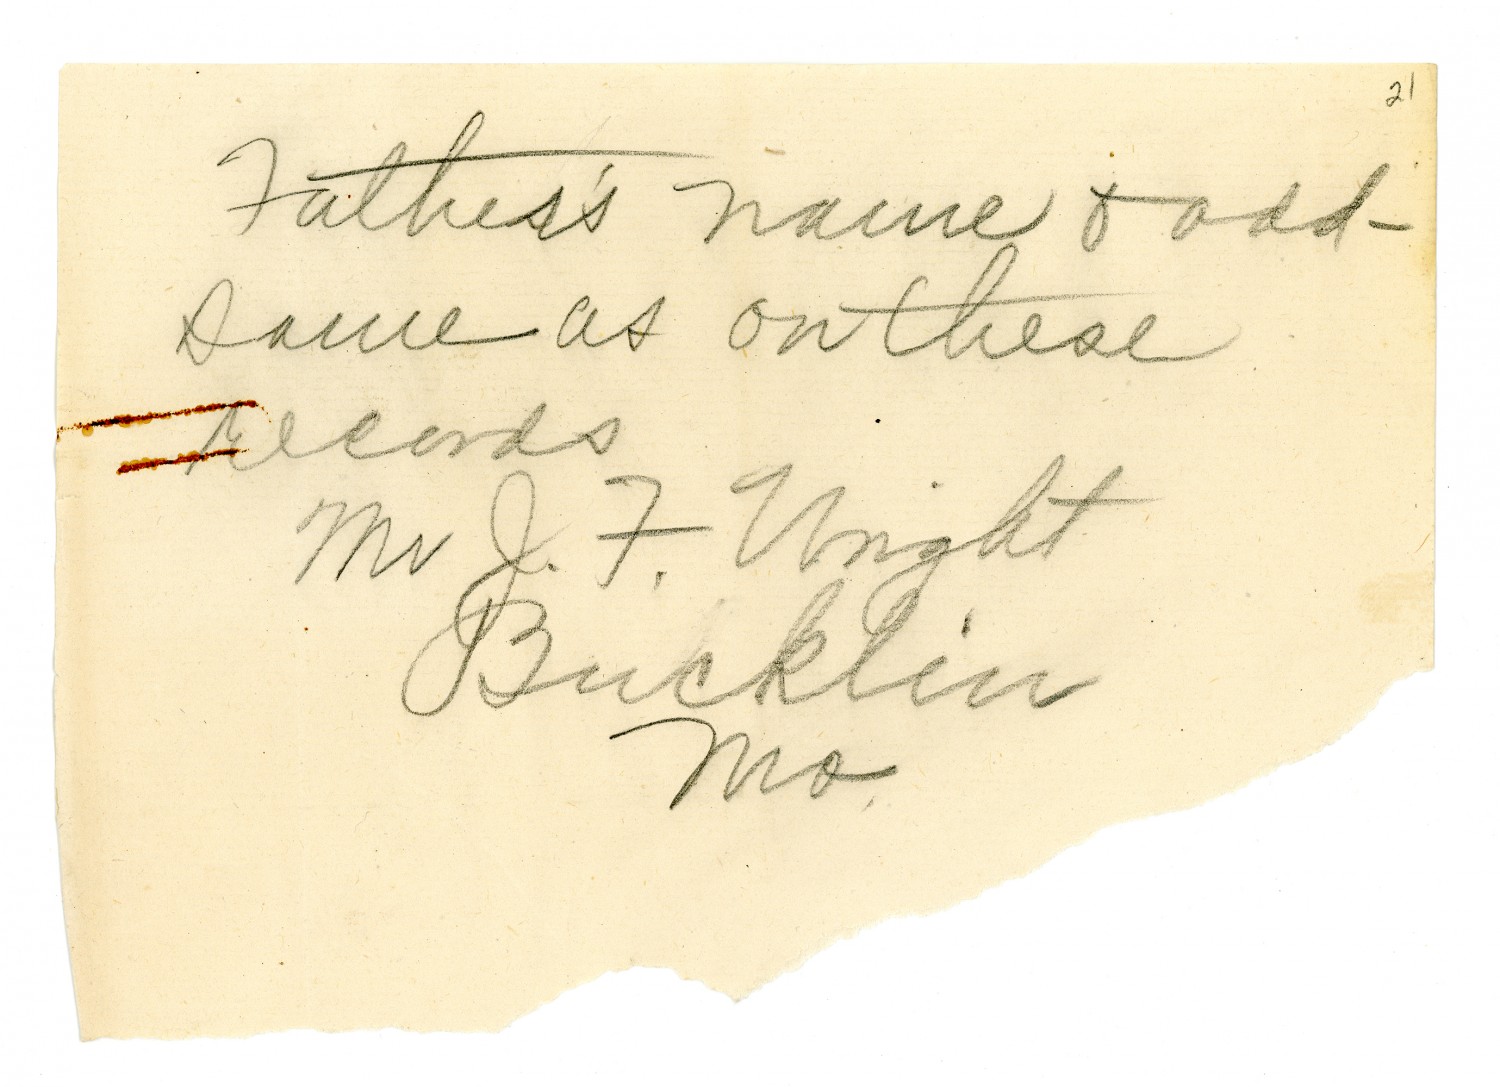 21
Father's name & add-
Same as on these
records
Mr J. F. Wright
Bucklin
Mo.